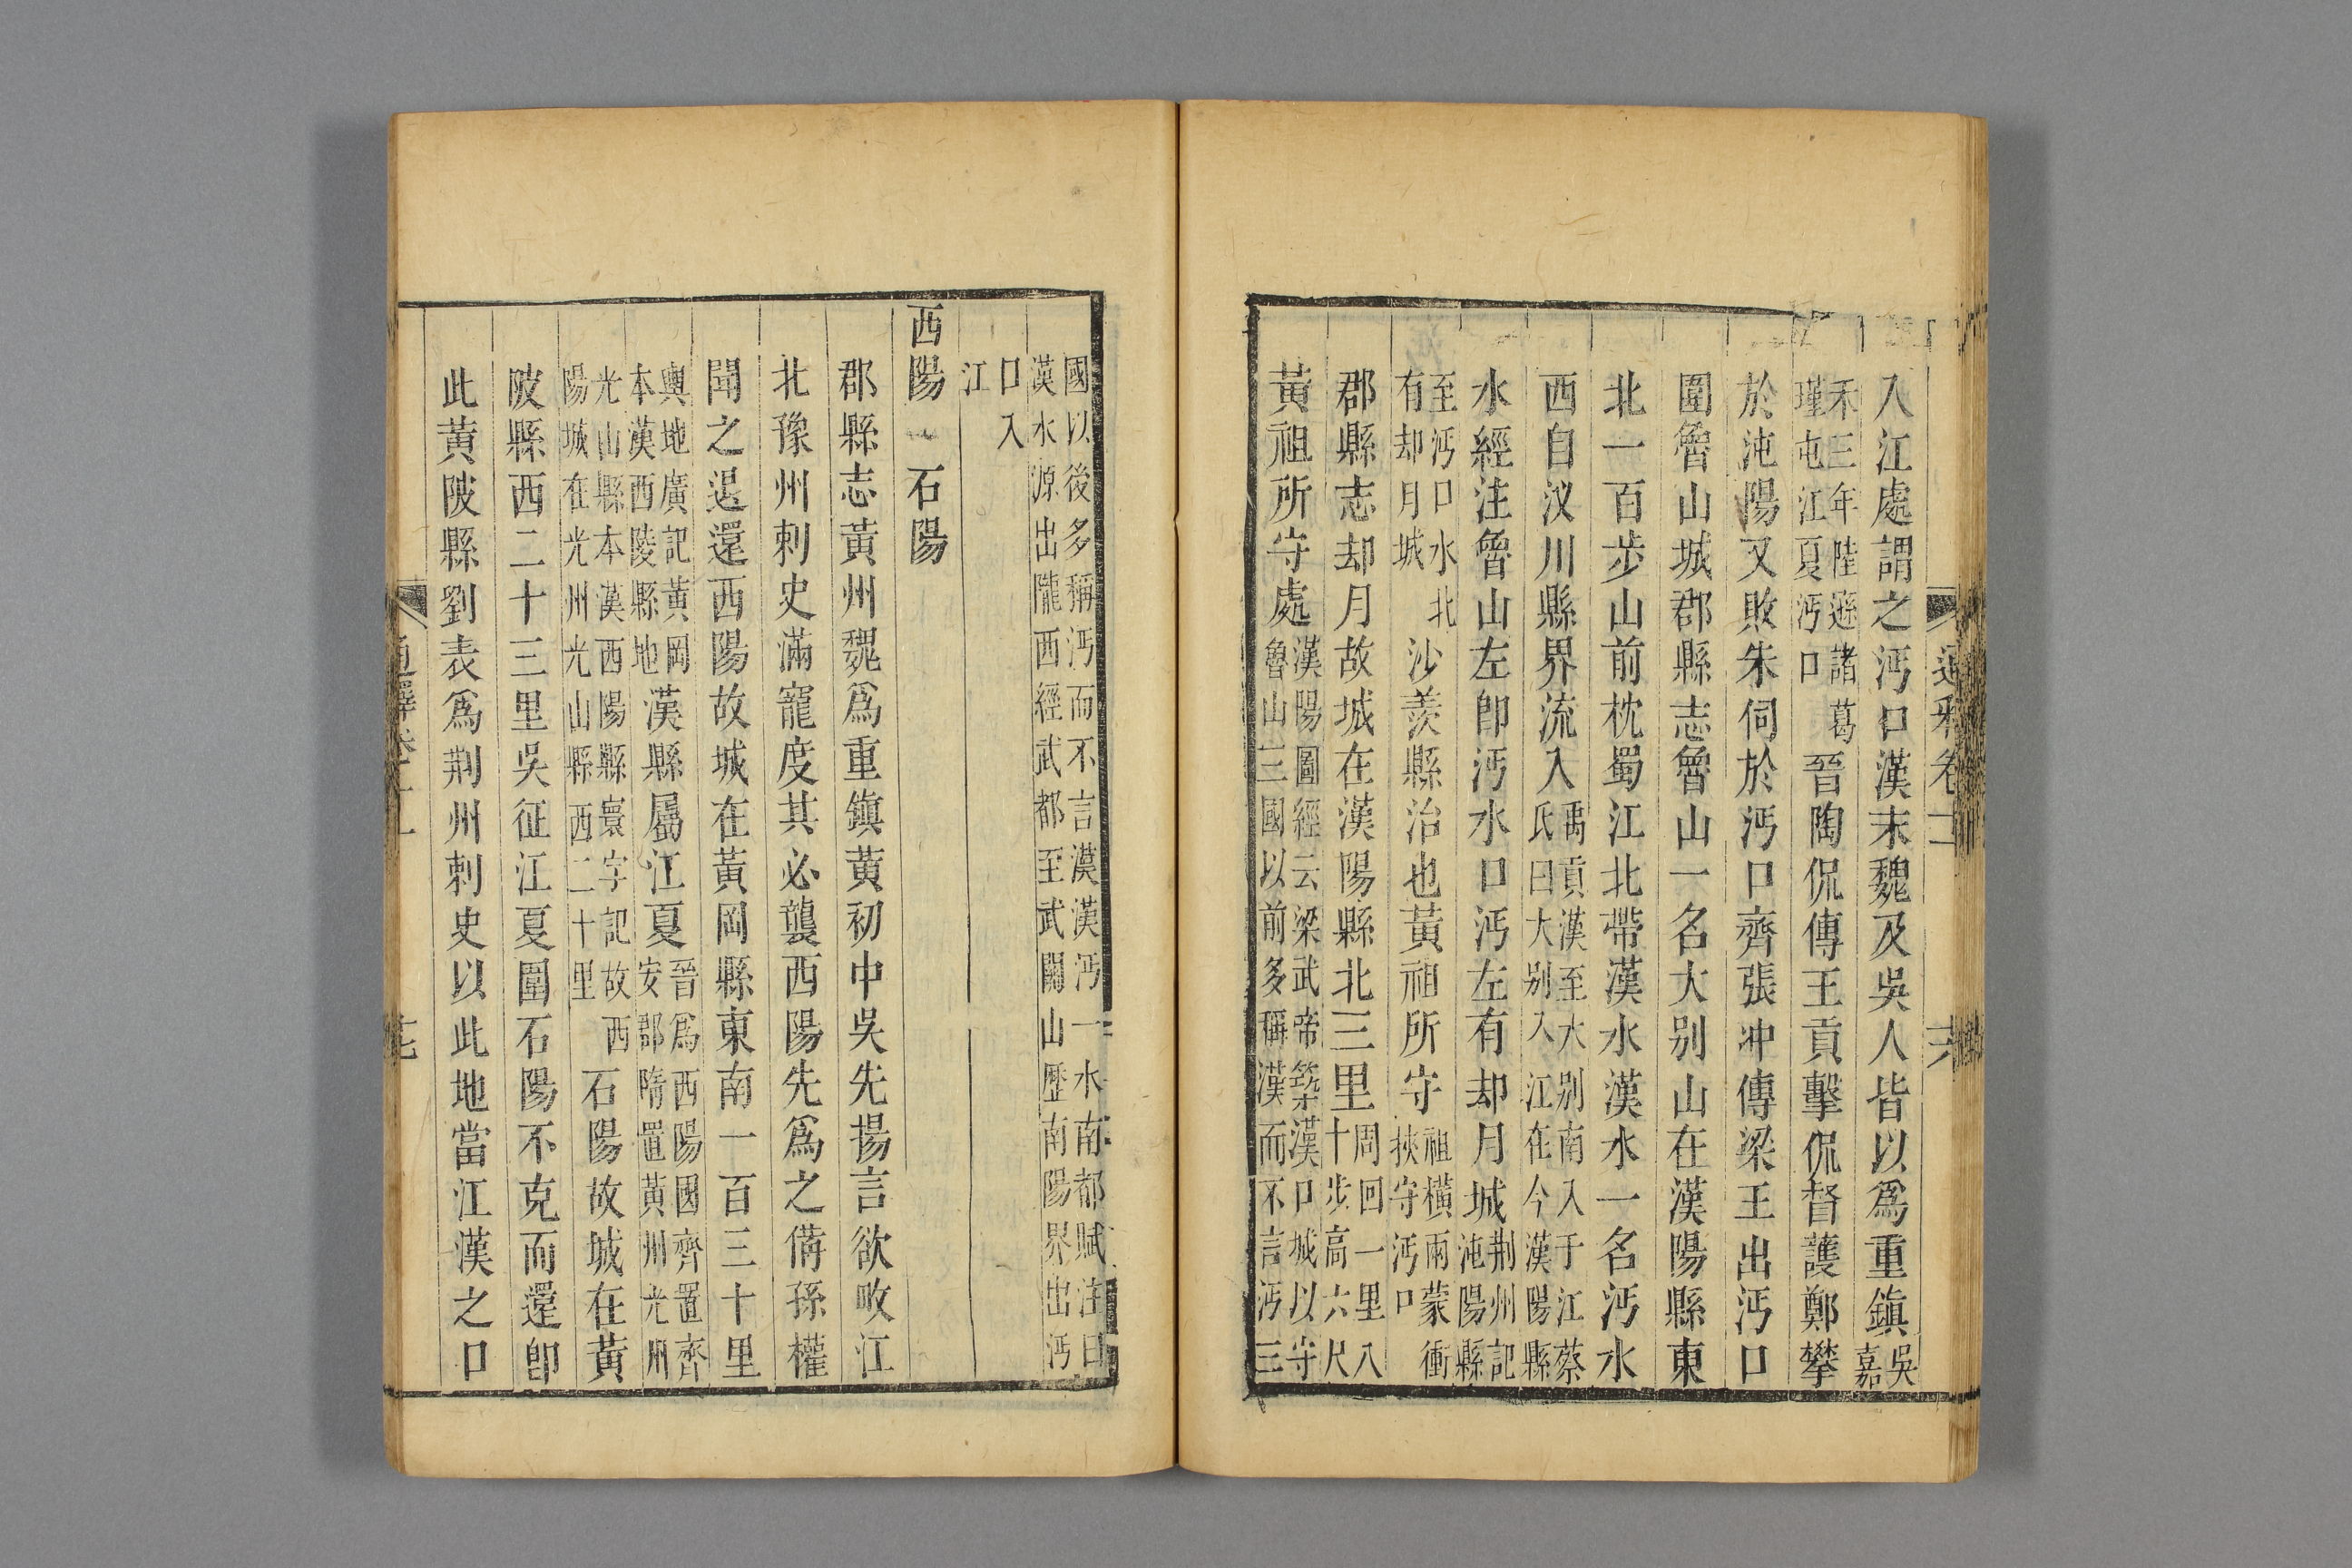 通釋卷二 十六
入江處謂之沔口漢末魏及吳人皆以爲重鎮吳嘉
禾三年陸遜諸葛瑾屯江夏沔口晉陶侃傳王貢擊侃督護鄭攀
於沌陽又敗朱伺於沔口齊張冲傳梁王出沔口
圍魯山城郡縣志魯山一名大别山在漢陽縣東
北一百步山前枕蜀江北帶漢水漢水一名沔水
西自汊川縣界流入禹貢漢至大别南入于江蔡氏曰大别入江在今漢陽縣
水經注魯山左卽沔水口沔左有却月城荆州記沌陽縣
至沔口水北有却月城沙羡縣治也黃祖所守祖橫兩蒙衝挾守沔口
郡縣志却月故城在漢陽縣北三里周回一里八十步高六尺
黃祖所守處漢陽圖經云梁武帝築漢口城以守魯山三國以前多稱漢而不言沔三
國以後多稱沔而不言漢漢沔一水南都賦注曰漢水源出隴西經武都至武關山歷南陽界出沔
口入江
西陽 石陽
郡縣志黃州魏爲重鎮黄初中吳先揚言欲畋江
北豫州刺史滿寵度其必襲西陽先爲之備孫權
聞之退還西陽故城在黃岡縣東南一百三十里
輿地廣記黃岡本漢西陵縣地漢縣屬江夏晉爲西陽國齊置齊安郡隋置黃州光州
光山縣本漢西陽縣寰宇記故西陽城在光州光山縣西二十里石陽故城在黃
陂縣西二十三里吳征江夏圍石陽不克而還卽
此黃陂縣劉表爲荆州刺史以此地當江漢之口
通釋卷十二 十七